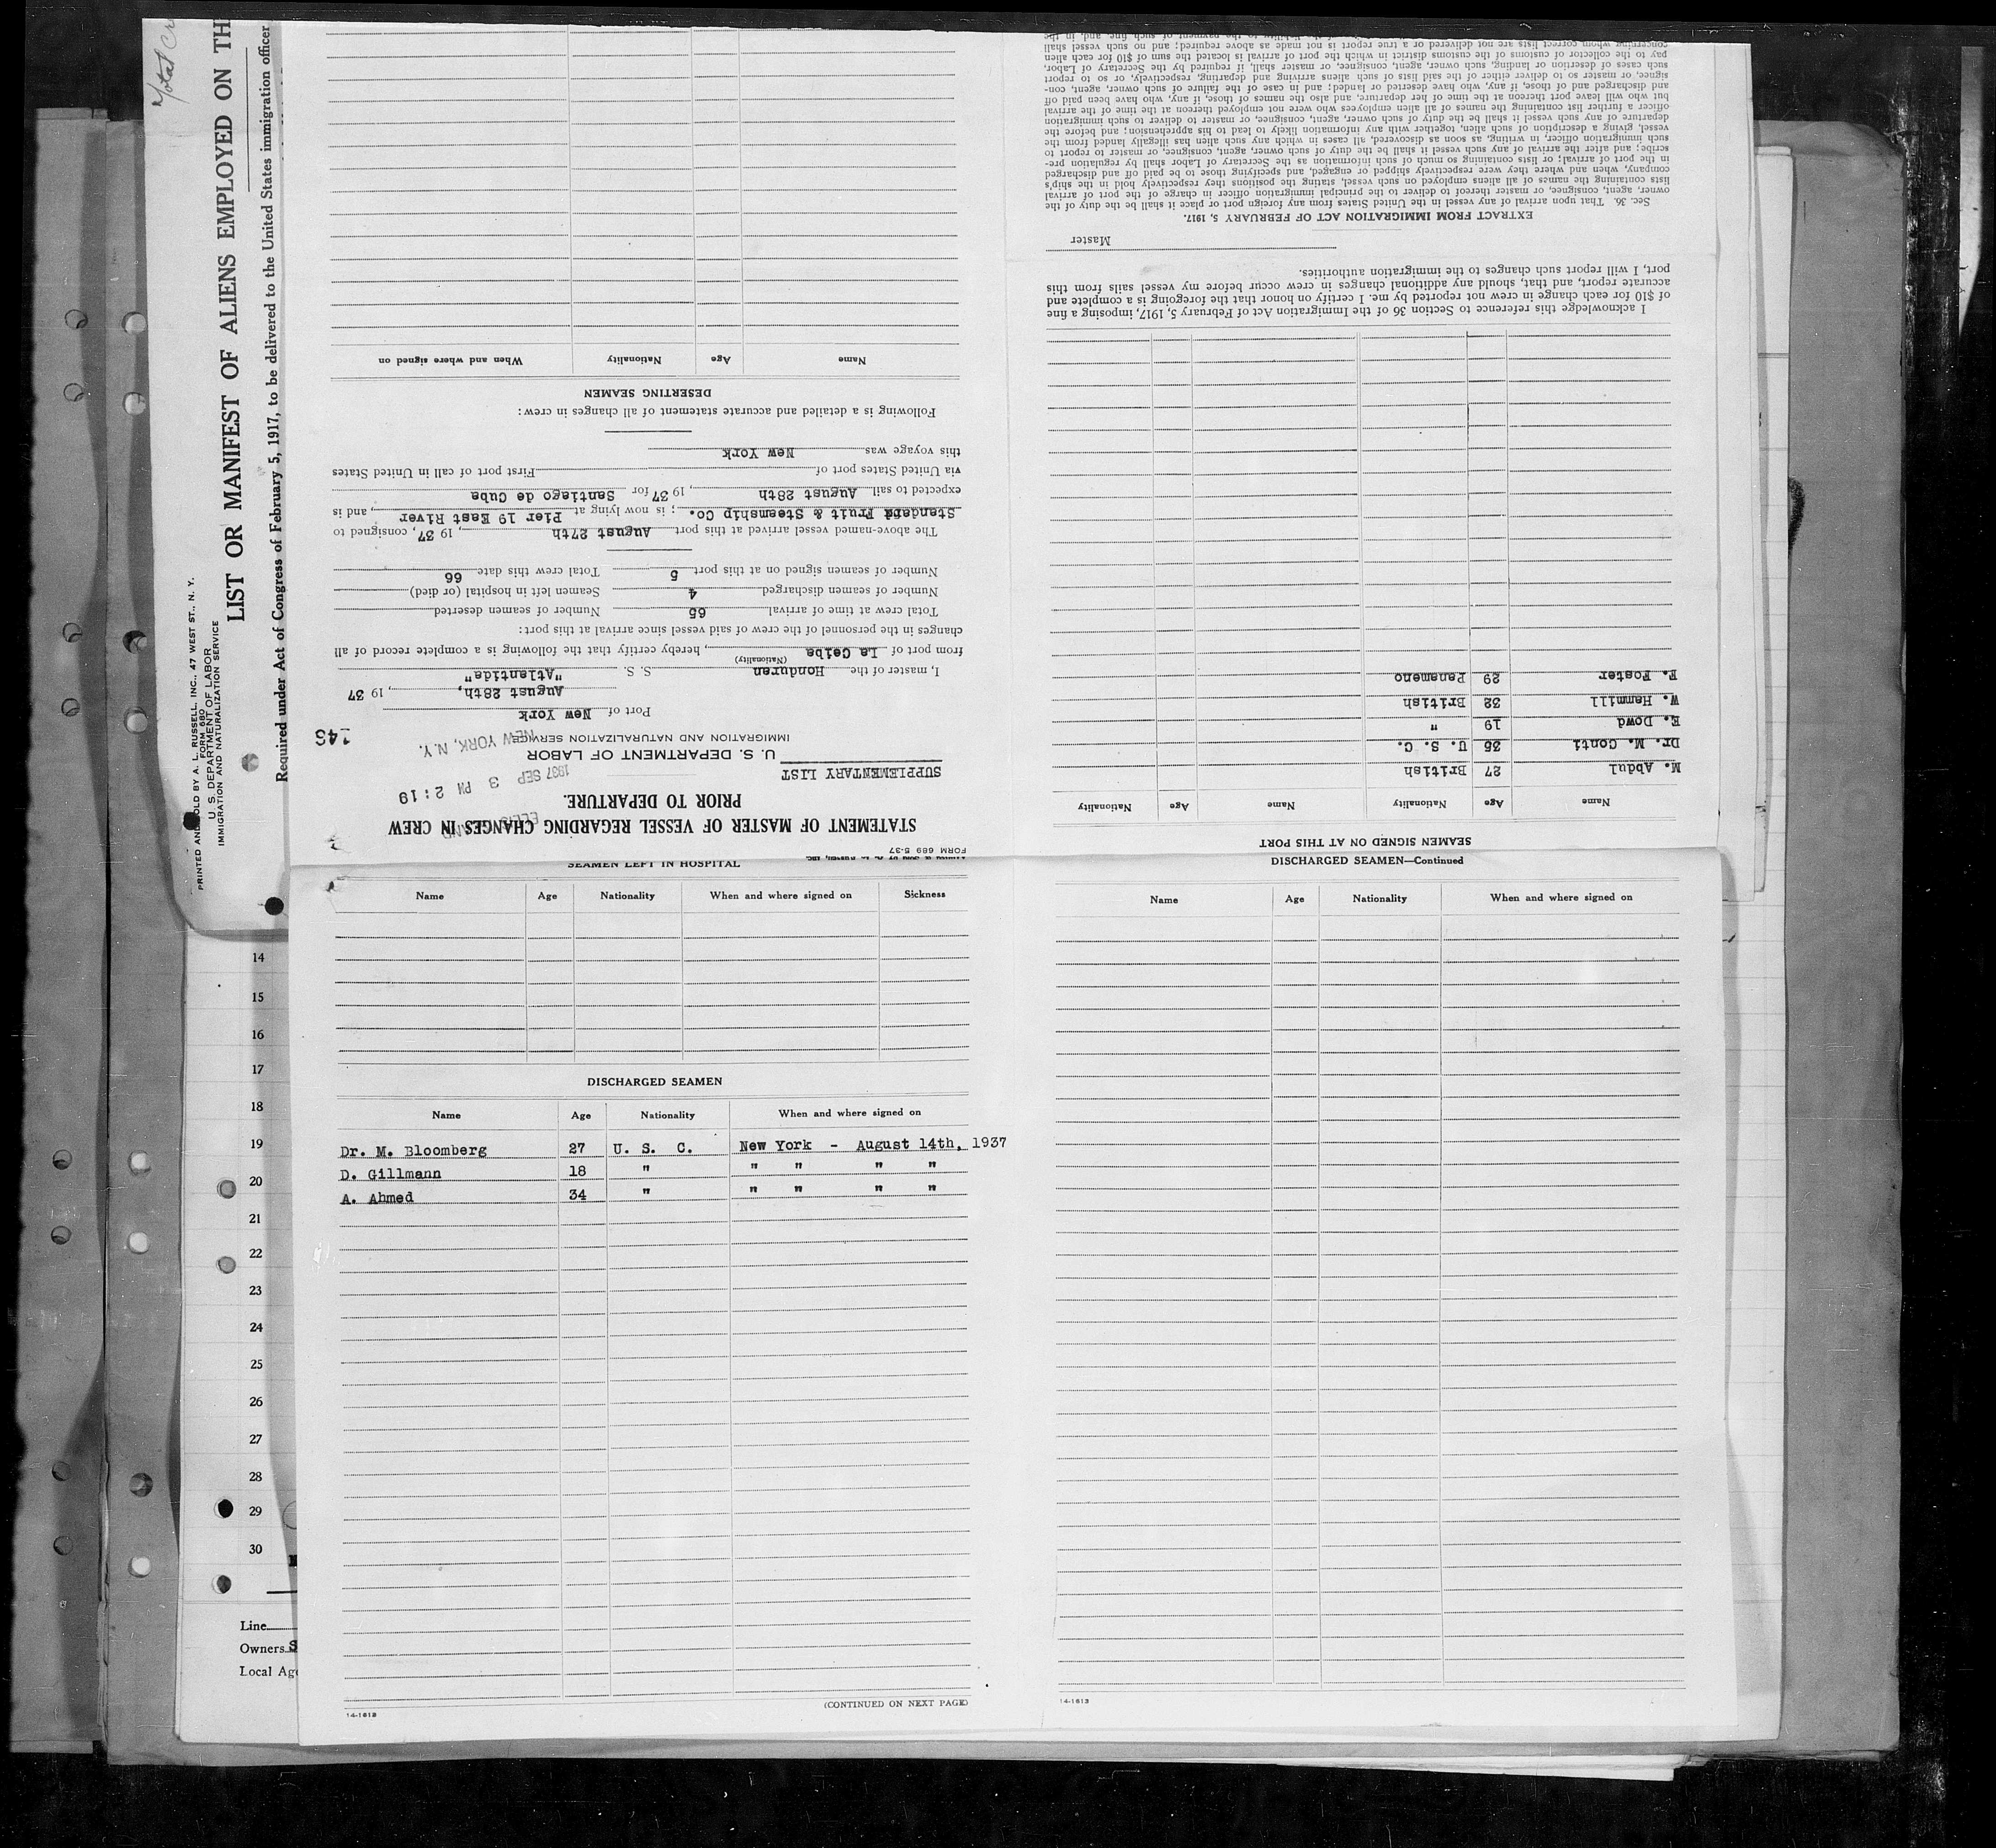 Total
PRINTED AND SOLD BY A. L. RUSSELL, INC., 47 WEST ST., N. Y.
FORM 680
U. S. DEPARTMENT OF LABOR
IMMIGRATION AND NATURALIZATION SERVICE
LIST OR MANIFEST OF ALIENS EMPLOYED ON TH
Required under Act of Congress of February 5, 1917, to be delivered to the United States immigration officer
FORM 689 5-37
STATEMENT OF MASTER OF VESSEL REGARDING CHANGES IN CREW
PRIOR TO DEPARTURE.
1937 SEP 3 PM 2:19
SUPPLEMENTARY LIST
U. S. DEPARTMENT OF LABOR
IMMIGRATION AND NATURALIZATION SERVICE
NEW YORK, N.Y.
143
Port of New York
August 28th, 19 37
I, master of the Honduran S. S. "Atlantida"
(Nationality)
from port of La Ceiba, hereby certify that the following is a complete record of all
changes in the personnel of the crew of said vessel since arrival at this port:
Total crew at time of arrival 65 Number of seamen deserted
Number of seamen discharged 4 Seamen left in hospital (or died)
Number of seamen signed on at this port 5 Total crew this date 66
The above-named vessel arrived at this port August 27th, 19 37, consigned to
Standard Fruit & Steamship Co. ; is now lying at Pier 19 East River, and is
expected to sail August 28th, 19 37 for Santiago de Cuba
via United States port of First port of call in United States
this voyage was New York
Following is a detailed and accurate statement of all changes in crew:
DESERTING SEAMEN
Name Age Nationality When and where signed on
SEAMEN SIGNED ON AT THIS PORT
Name Age Nationality Name Age Nationality
M. Abdul 27 British
Dr. M. Conti 35 U. S. C.
E. Dowd 19 "
W. Hammill 32 British
F. Foster 29 Panameno
I acknowledge this reference to Section 36 of the Immigration Act of February 5, 1917, imposing a fine
of $10 for each change in crew not reported by me. I certify on honor that the foregoing is a complete and
accurate report, and that, should any additional changes in crew occur before my vessel sails from this
port, I will report such changes to the immigration authorities.
Master
EXTRACT FROM IMMIGRATION ACT OF FEBRUARY 5, 1917.
Sec. 36. That upon arrival of any vessel in the United States from any foreign port or place it shall be the duty of the
owner, agent, consignee, or master thereof to deliver to the principal immigration officer in charge of the port of arrival
lists containing the names of all aliens employed on such vessel, stating the positions they respectively hold in the ship's
company, when and where they were respectively shipped or engaged, and specifying those to be paid off and discharged
in the port of arrival; or lists containing so much of such information as the Secretary of Labor shall by regulation pre-
scribe; and after the arrival of any such vessel it shall be the duty of such owner, agent, consignee, or master to report to
such immigration officer, in writing, as soon as discovered, all cases in which any such alien has illegally landed from the
vessel, giving a description of such alien, together with any information likely to lead to his apprehension; and before the
departure of any such vessel it shall be the duty of such owner, agent, consignee, or master to deliver to such immigration
officer a further list containing the names of all alien employees who were not employed thereon at the time of the arrival
but who will leave port thereon at the time of her departure, and also the names of those, if any, who have been paid off
and discharged and of those, if any, who have deserted or landed; and in case of the failure of such owner, agent, con-
signee, or master so to deliver either of the said lists of such aliens arriving and departing, respectively, or so to report
such cases of desertion or landing, such owner, agent, consignee, or master shall, if required by the Secretary of Labor,
pay to the collector of customs of the customs district in which the port of arrival is located the sum of $10 for each alien
concerning whom correct lists are not delivered or a true report is not made as above required; and no such vessel shall
SEAMEN LEFT IN HOSPITAL
Name Age Nationality When and where signed on Sickness
DISCHARGED SEAMEN
Name Age Nationality When and where signed on
Dr. M. Bloomberg 27 U. S. C. New York - August 14th, 1937
D. Gillmann 18 " " " " "
A. Ahmed 34 " " " " "
(CONTINUED ON NEXT PAGE)
14-1613
DISCHARGED SEAMEN—Continued
Name Age Nationality When and where signed on
14-1613
14
15
16
17
18
19
20
21
22
23
24
25
26
27
28
29
30
Line
Owners S
Local Age